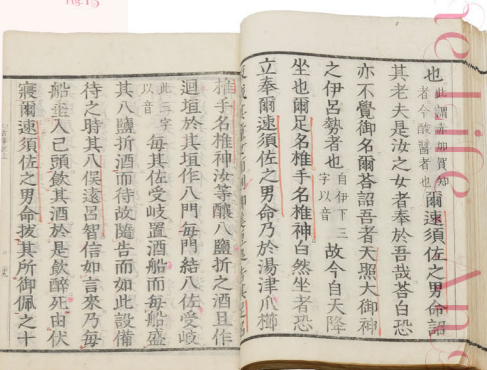 Fig.15
也此謂赤加賀知者今酸醤者也爾速須佐之男命詔
其老夫是汝之女者奉於吾哉荅白恐
亦不覺御名爾荅詔吾者天照大御神
之伊呂勢者也自伊下三字以音故今自天降
坐也爾足名椎手名椎神白然坐者恐
立奉爾速須佐之男命乃於湯津爪櫛
椎手名椎神汝等釀八鹽折之酒且作
迴垣於其垣作八門毎門結八佐受岐
此三字以音毎其佐受岐置酒船而毎船盛
其八鹽折酒而待故隨告而如此設備
待之時其八俣遠呂智信如言來乃毎
船垂入己頭飲其酒於是飲醉死由伏
寢爾速須佐之男命拔其所御佩之十
he Life
Ang